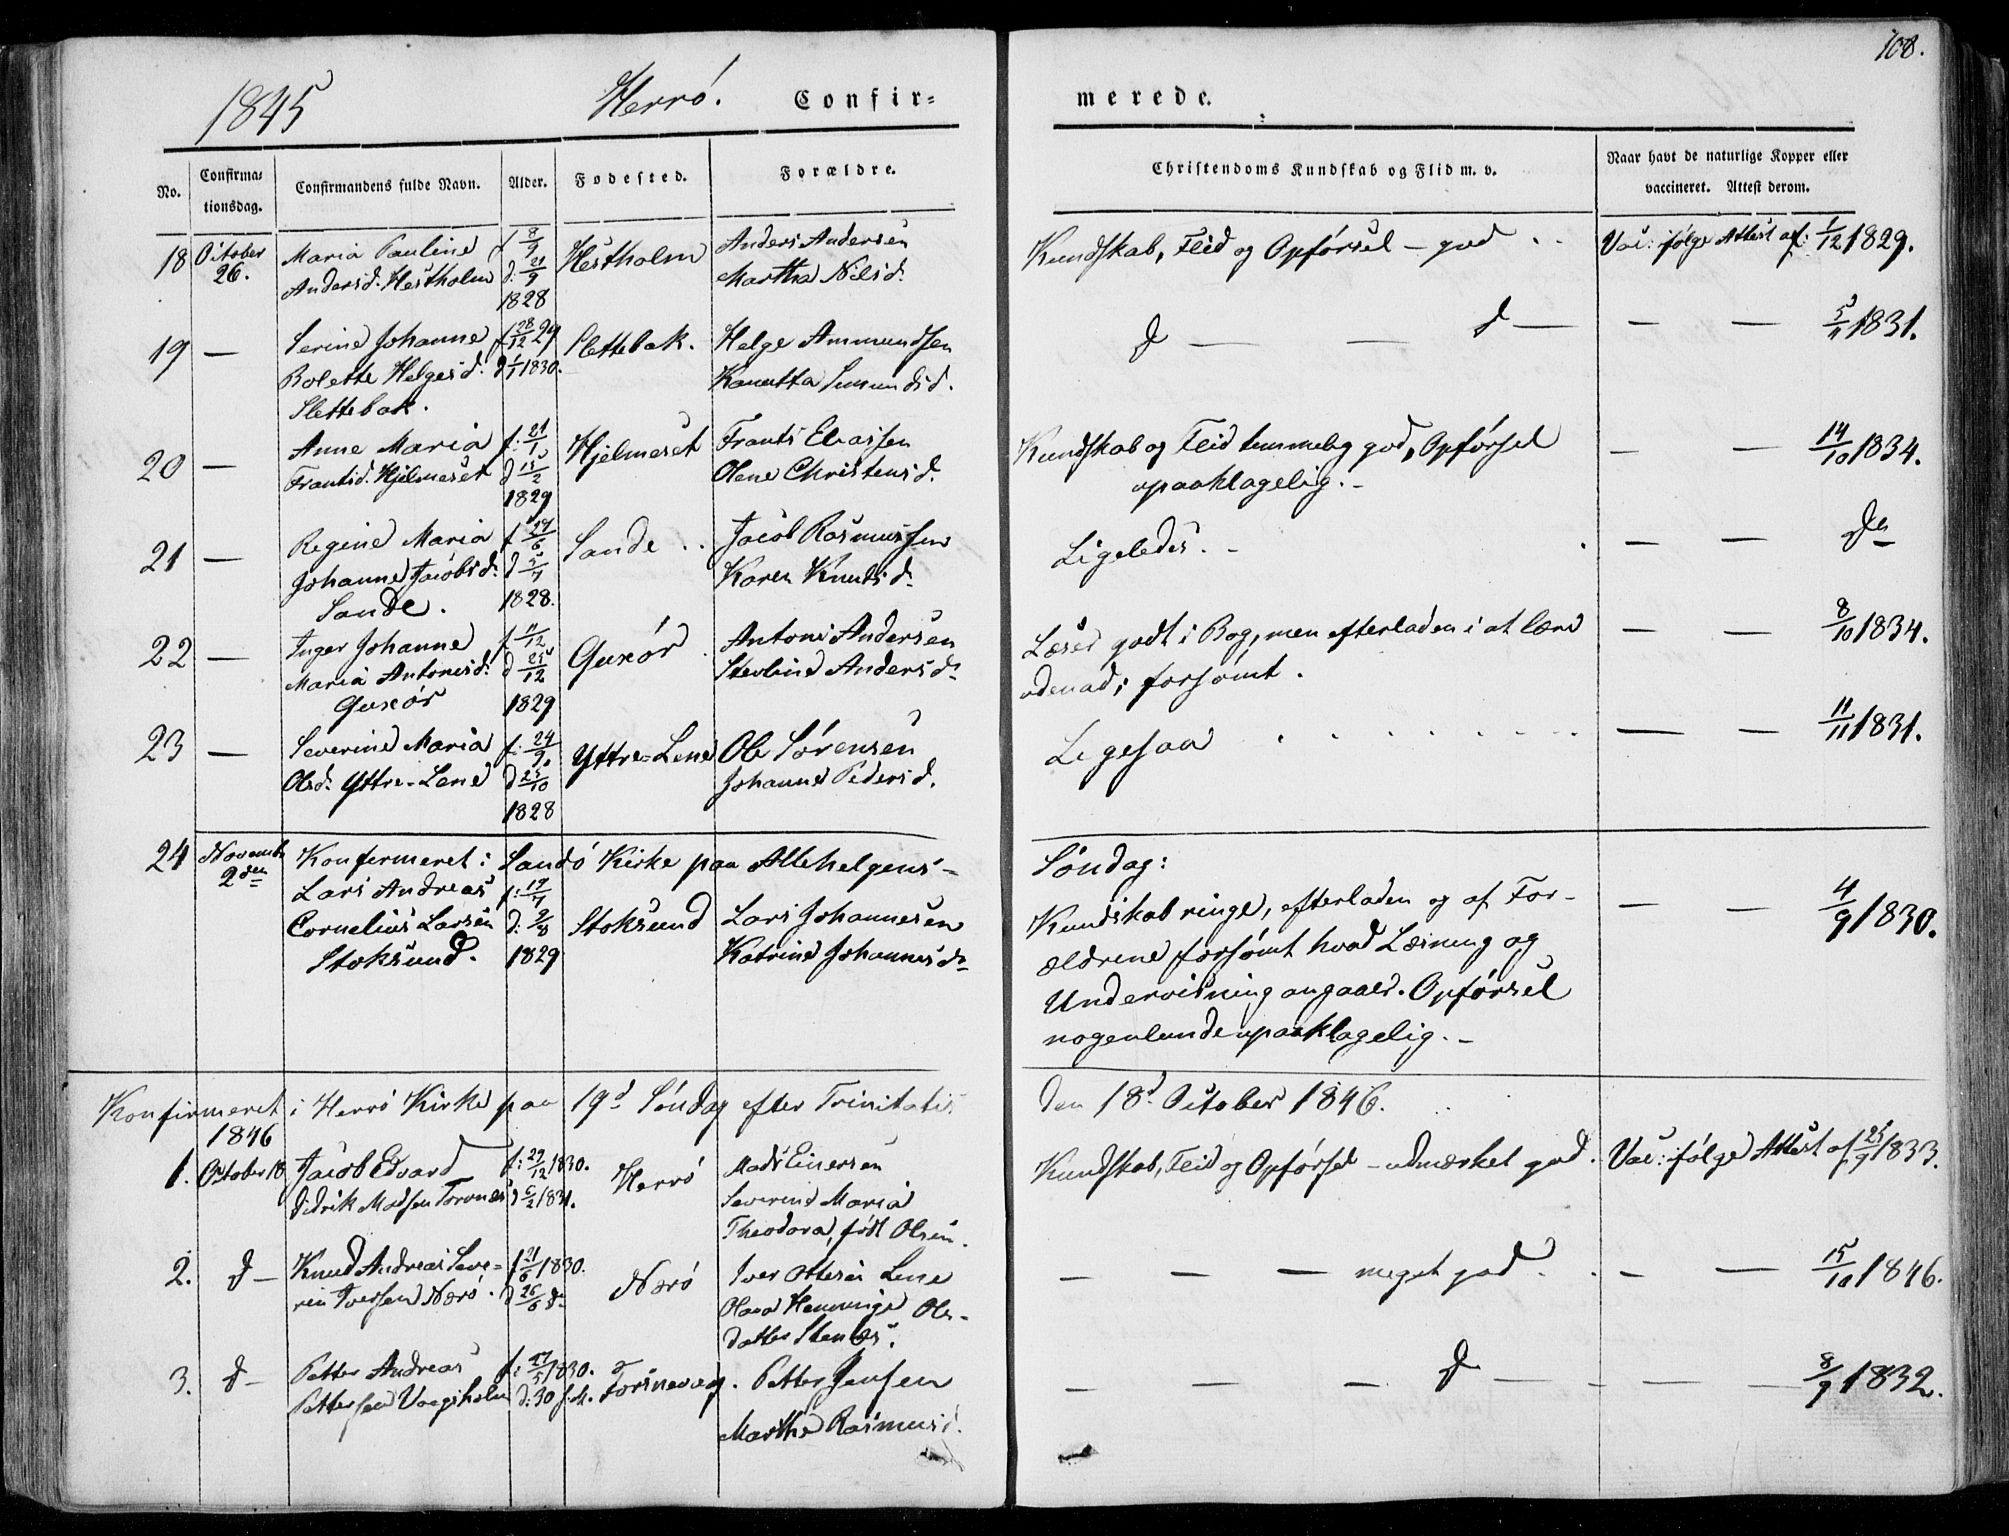 108.
1845 Herrö. Confir=
merede.
No. Confirma=
tionsdag. Confirmandens fulde Navn. Alder. Fødested. Forældre. Christendoms Kundskab og Flid m. v. Naar havt de naturlige Kopper eller
vaccineret. Attest derom.
18 October
26. Maria Pauline
Andersd. Hestholm f 8/9
d: 21/9
1828 Hestholm Anders Andersen
Martha Nilsd. Kundskab, Flid og Opførsel – god Vac: ifølge Attest af: 1/12 1829.
19 — Serine Johanne
Bolette Helgesd.
Slettebak. f 28/12 29
d 1/1 1830. Slettebak. Helge Ammundsen
d — — d — — — 5/11 1831.
20 — Anne Maria
Frantsd. Hjelmeset f: 21/1
d 15/2
1829 Hjelmeset Frants Eliassen
Olene Christensd. Kundskab og Flid temmelig god, Opførsel
upaaklagelig. – — — 14/10 1834.
21 — Regine Maria
Johanne Jacobsd.
Sande. f 27/6
1828. Sande Jacob Rasmussen
Karen Knudsd. Ligeledes. – — — do
22 — Inger Johanne
Maria Antonisd:
Gurør f 11/12
d 25/12
1829 Gurør Antoni Andersen
Stevline Andersd. Læser godt i Bog, men efterladen i at lære
udenad; forsømt. — — 8/10 1834.
23 — Severine Maria
Olsd. Yttre-Lene f: 24/9
d 25/10
1828 Yttre=Lene Ole Sørensen
Johanne Pedersd. Ligesaa — — 11/11 1831.
24 Novemb.
2den Konfirmeret i Sandö Kirke paa Allehelgens- Søndag:
Lars Andreas
Cornelius Larsen
Stoksund. f: 19/7
d: 2/8
1829 Stoksund Lars Johannesen
Katrine Johannesd. Kundskab ringe, efterladen og af For-
ældrene forsømt hvad Læsning og
Undervisning angaaer. Opførsel
nogenlunde upaaklagelig. – — — 4/9 1830.
Konfirmeret i Herrö Kirke paa 19d Søndag efter Trinitatis den 18d October 1846.
1846
1. October 18 Jacob Edvard
Didrik Madsen Torvnæs f: 29/12 1830.
d 6/2 1831. Herrö Mads Einersen
Severine Maria
Theodora, født Olsen. Kundskab, Flid og Opførsel – udmærket god. Vac: ifølge Attest af 25/9 1833.
2. d — Knud Andreas Seve-
rin Iversen Nærö. f 21/6 1830.
d 26/6 do Nærö Iver Ottesen Lene
Olava Hemmings Ols-
datter Stenæs. — — — meget god. — — 15/10 1846.
3. d — Petter Andreas
Pettersen Vaagsholm f: 27/5 1830. Petter Jensen
Marthe Rasmusd. — — — d — — — 8/9 1832.